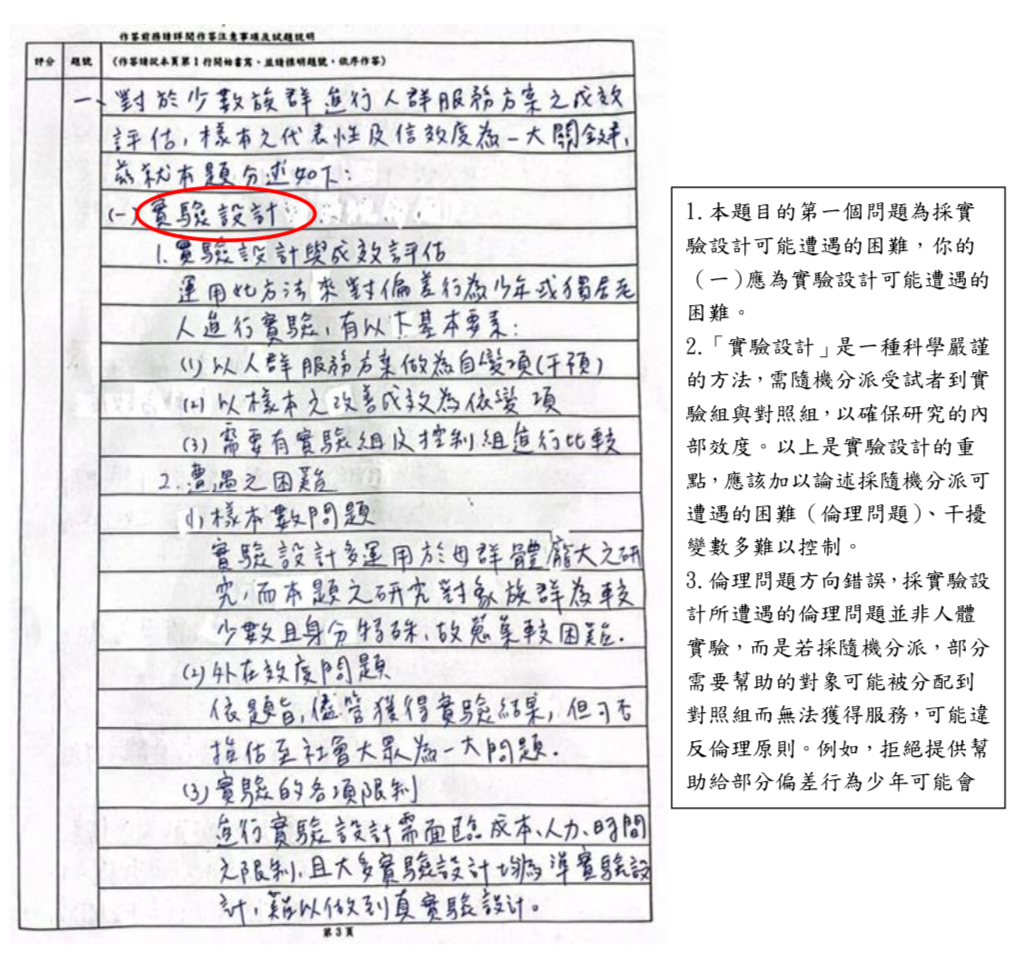 作答前務請詳閱作答注意事項及試題說明
評分 題號 (作答請從本頁第1行開始書寫，並請標明題號，依序作答)
一、對於少數族群進行人群服務方案之成效
評估，樣本之代表性及信效度為一大關鍵，
茲就本題分述如下：
(一)實驗設計
1.實驗設計與成效評估
運用此方法來對偏差行為少年或獨居老
人進行實驗，有以下基本要素：
(1)以人群服務方案做為自變項(干預)
(2)以樣本之改善成效為依變項
(3)需要有實驗組及控制組進行比較
2.遭遇之困難
(1)樣本數問題
實驗設計多運用於母群體龐大之研
究，而本題之研究對象族群為較
少數且身分特殊，故蒐集較困難。
(2)外在效度問題
依題旨，儘管獲得實驗結果，但可否
推估至社會大眾為一大問題。
(3)實驗的各項限制
進行實驗設計需面臨成本、人力、時間
之限制，且大多實驗設計均為準實驗設
計，難以做到真實驗設計。
第3頁
1.本題目的第一個問題為採實
驗設計可能遭遇的困難，你的
（一）應為實驗設計可能遭遇的
困難。
2.「實驗設計」是一種科學嚴謹
的方法，需隨機分派受試者到實
驗組與對照組，以確保研究的內
部效度。以上是實驗設計的重
點，應該加以論述採隨機分派可
遭遇的困難（倫理問題）、干擾
變數多難以控制。
3.倫理問題方向錯誤，採實驗設
計所遭遇的倫理問題並非人體
實驗，而是若採隨機分派，部分
需要幫助的對象可能被分配到
對照組而無法獲得服務，可能違
反倫理原則。例如，拒絕提供幫
助給部分偏差行為少年可能會